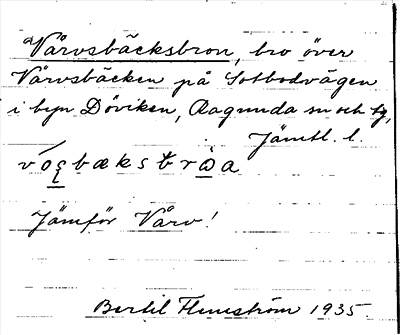 Vårvsbäcksbron, bro över
Vårvsbäcken på Sotbodvägen
i byn Döviken, Ragunda sn och tg,
Jämtl. l.
Jämför Vårv!
Bertil Flemström 1935.